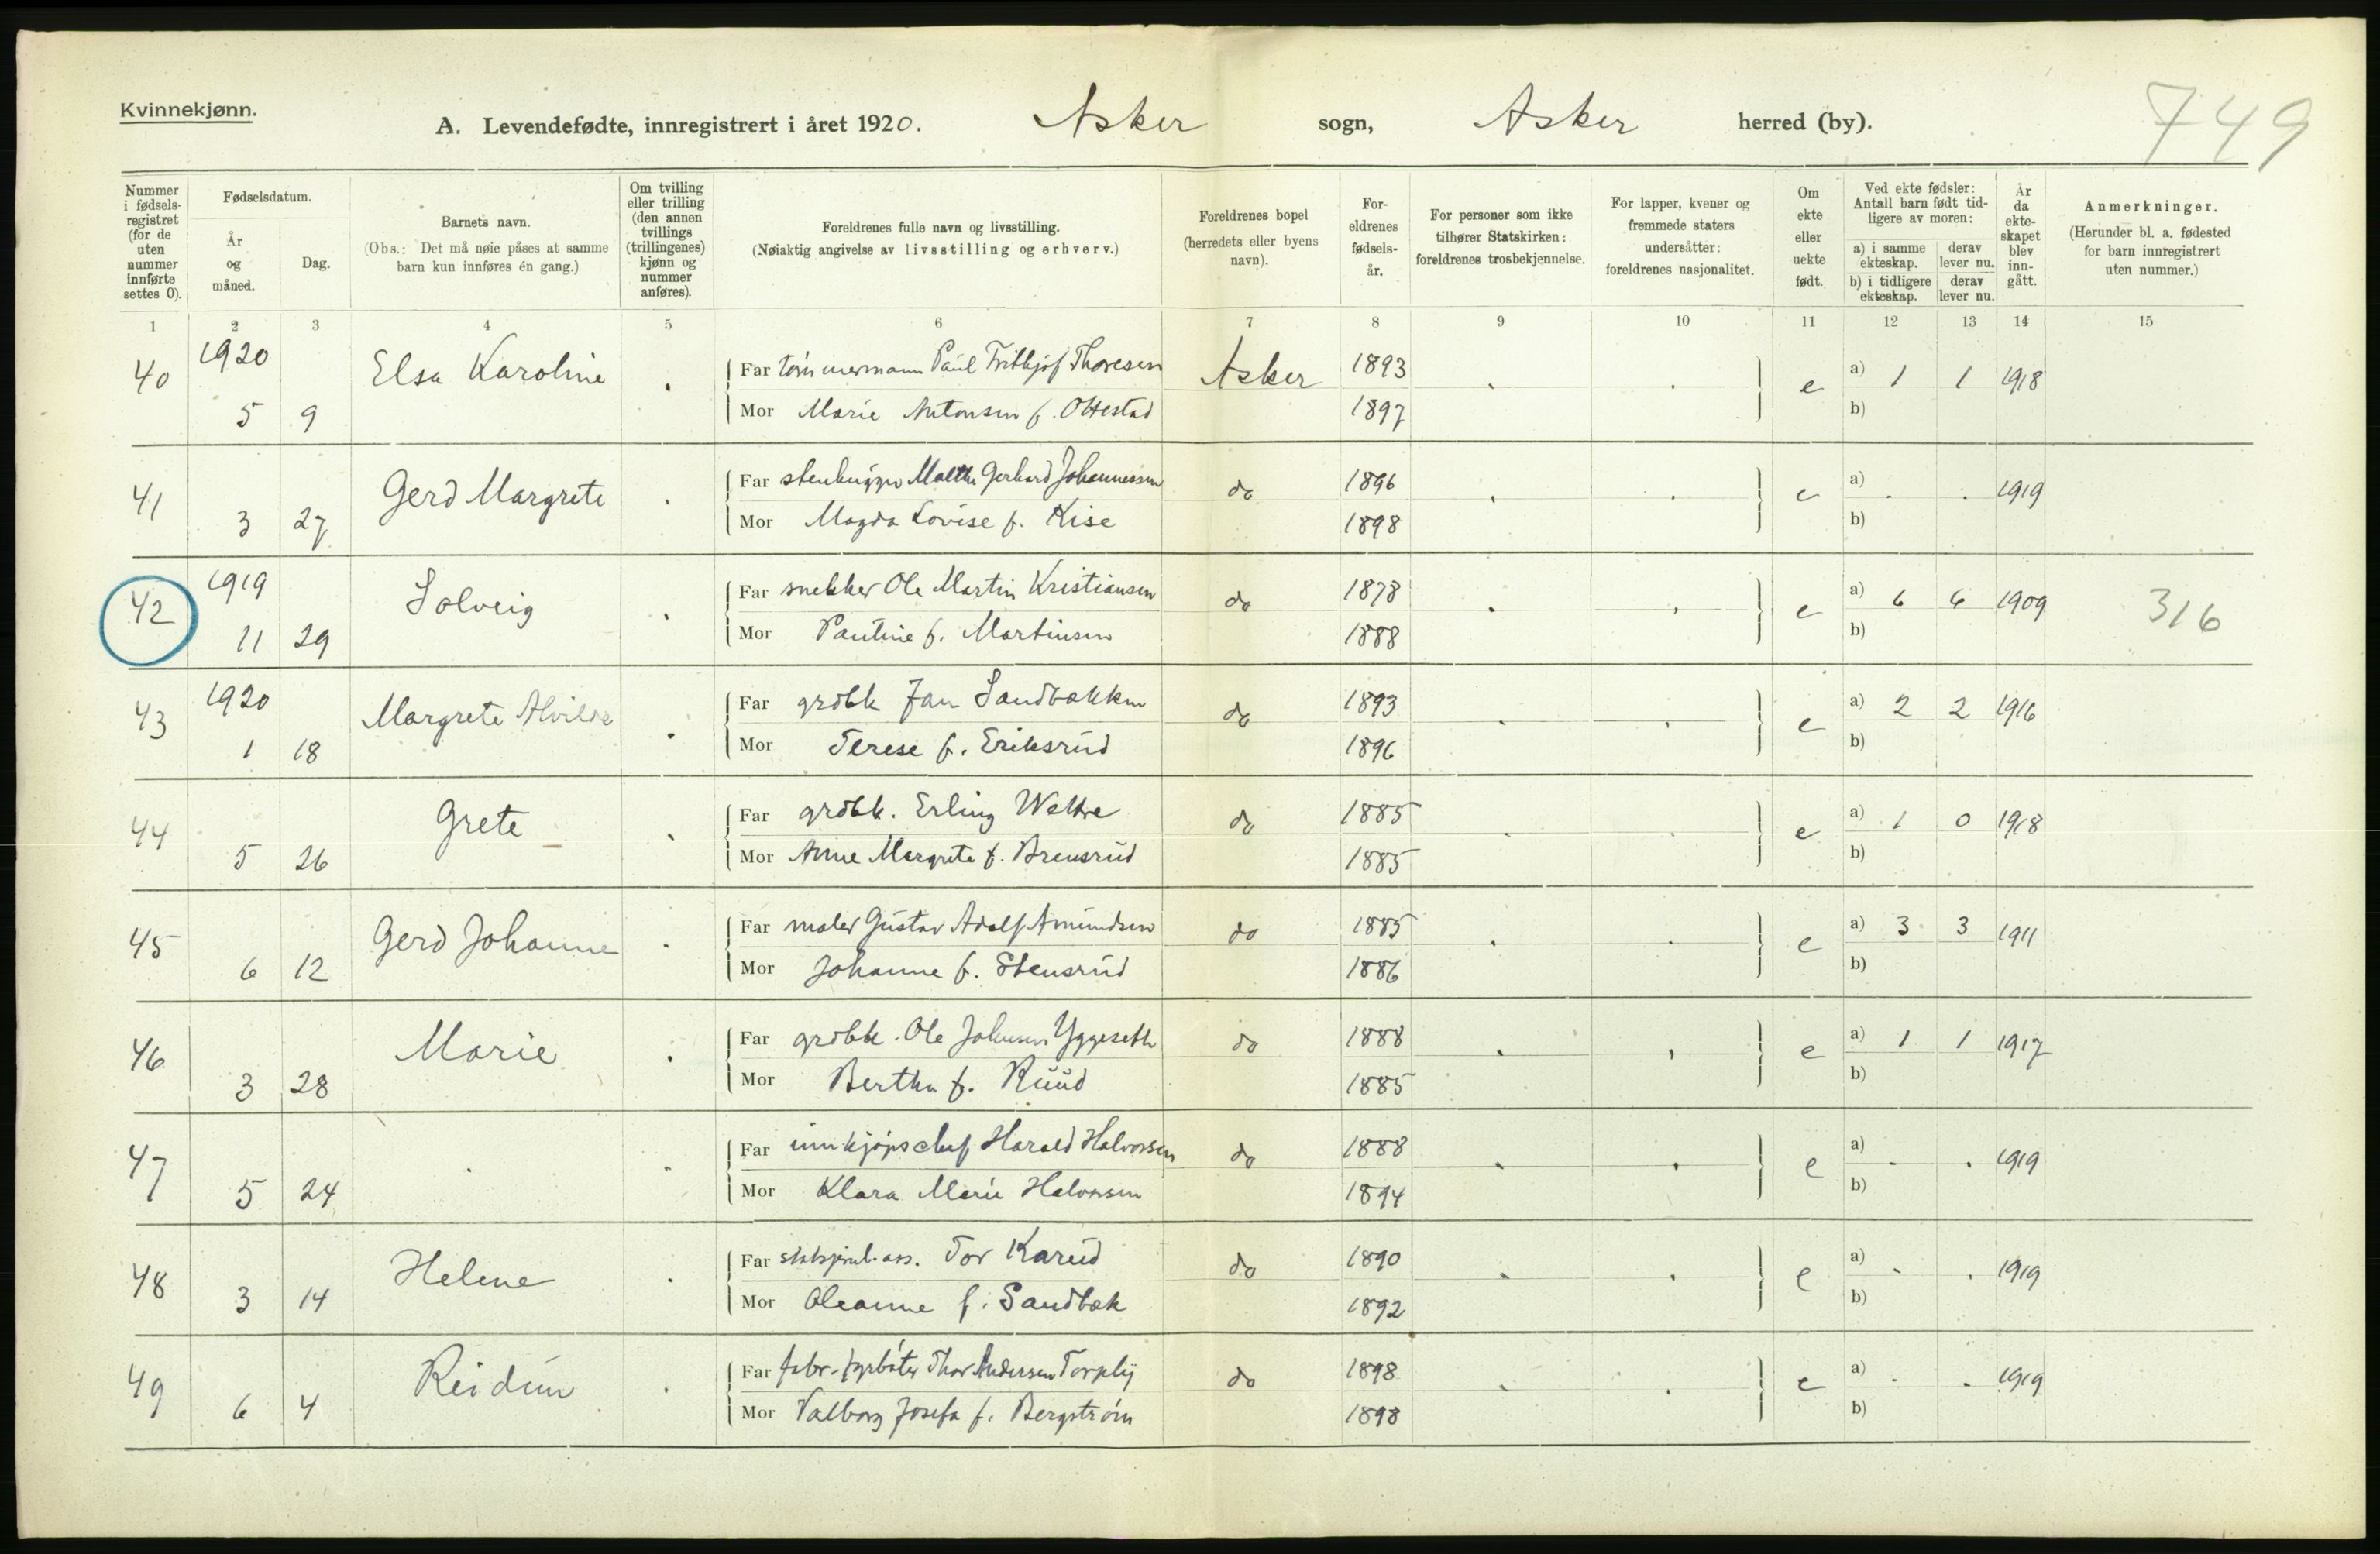 Kvinnekjønn.
A. Levendefødte, innregistrert i året 1920. Asker sogn, Asker herred (by). 749
Nummer i fødselsregistret (for de uten nummer innførte settes 0).
Fødselsdatum.
År og måned.
Dag.
Barnets navn.
(Obs.: Det må nøie påses at samme barn kun innføres én gang.)
Om tvilling eller trilling (den annen tvillings (trillingenes) kjønn og nummer anføres).
Foreldrenes fulle navn og livsstilling.
(Nøiaktig angivelse av livsstilling og erhverv.)
Foreldrenes bopel (herredets eller byens navn).
Foreldrenes fødselsår.
For personer som ikke tilhører Statskirken: foreldrenes trosbekjennelse.
For lapper, kvener og fremmede staters undersåtter: foreldrenes nasjonalitet.
Om ekte eller uekte født.
Ved ekte fødsler: Antall barn født tidligere av moren:
a) i samme ekteskap. derav lever nu.
b) i tidligere ekteskap. derav lever nu.
År da ekteskapet blev inngått.
Anmerkninger.
(Herunder bl. a. fødested for barn innregistrert uten nummer.)
1 2 3 4 5 6 7 8 9 10 11 12 13 14 15
40 1920 5 9 Elsa Karoline . Far tømmermann Paul Frithjof Thoresen Asker 1893 . . e a) 1 1 1918
Mor Marie Antonsen f. Ottestad 1897 b)
41 3 27 Gerd Margrete . Far stenhugger Malthe Gerhard Johannessen do 1896 . . e a) . . 1919
Mor Magda Lovise f. Kise 1898 b)
42 1919 11 29 Solveig . Far snekker Ole Martin Kristiansen do 1878 . . e a) 6 6 1909 316
Mor Pauline f. Martinsen 1888 b)
43 1920 1 18 Margrete Alvilde . Far grdbk Jan Sandbakken do 1893 . . e a) 2 2 1916
Mor Terese f. Eriksrud 1896 b)
44 5 26 Grete . Far grdbk. Erling Wettre do 1885 . . e a) 1 0 1918
Mor Anne Margrete f. Brensrud 1885 b)
45 6 12 Gerd Johanne . Far maler Gustav Adolf Amundsen do 1885 . . e a) 3 3 1911
Mor Johanne f. Stensrud 1886 b)
46 3 28 Marie . Far grdbk. Ole Johnsen Yggeseth do 1888 . . e a) 1 1 1917
Mor Bertha f. Ruud 1885 b)
47 5 24 . . Far innkjøpschef Harald Halvorsen do 1888 . . e a) . . 1919
Mor Klara Marie Halvorsen 1894 b)
48 3 14 Helene . Far Tor Karud do 1890 . . e a) . . 1919
Mor Oleanne f. Sandbæk 1892 b)
49 6 4 Reidun . Far fabr. fyrbøter Thor Andersen do 1898 . . e a) . . 1919
Mor Valborg Josefa f. Bergstrøm 1898 b)